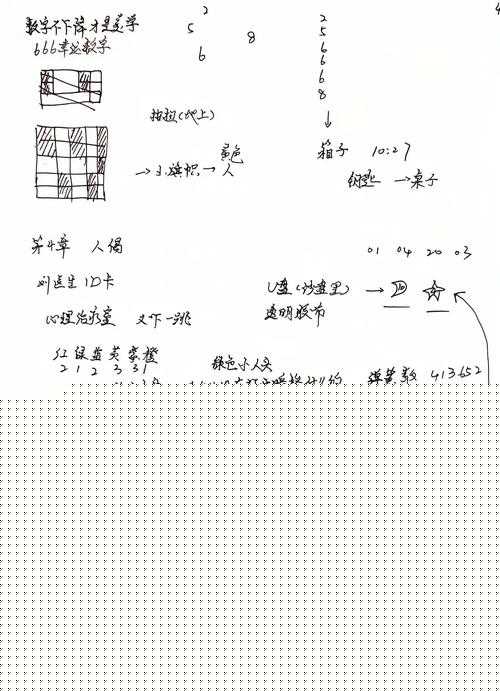 数字不下降才是美学
666幸运数字
2
5 8
6
2
5
6
6
6
8
(地上)
箱子 10:27
黄色
→ 3. 旗帜 → 人
钥匙 → 桌子
第4章 人偶
01 04 20 03
刘医生ID卡
U盘(沙盘里) →
透明胶布
心理治疗室 又下一跳
红绿蓝黄紫橙
2 1 2 3 3 1
绿色小人头
弹簧数 413652